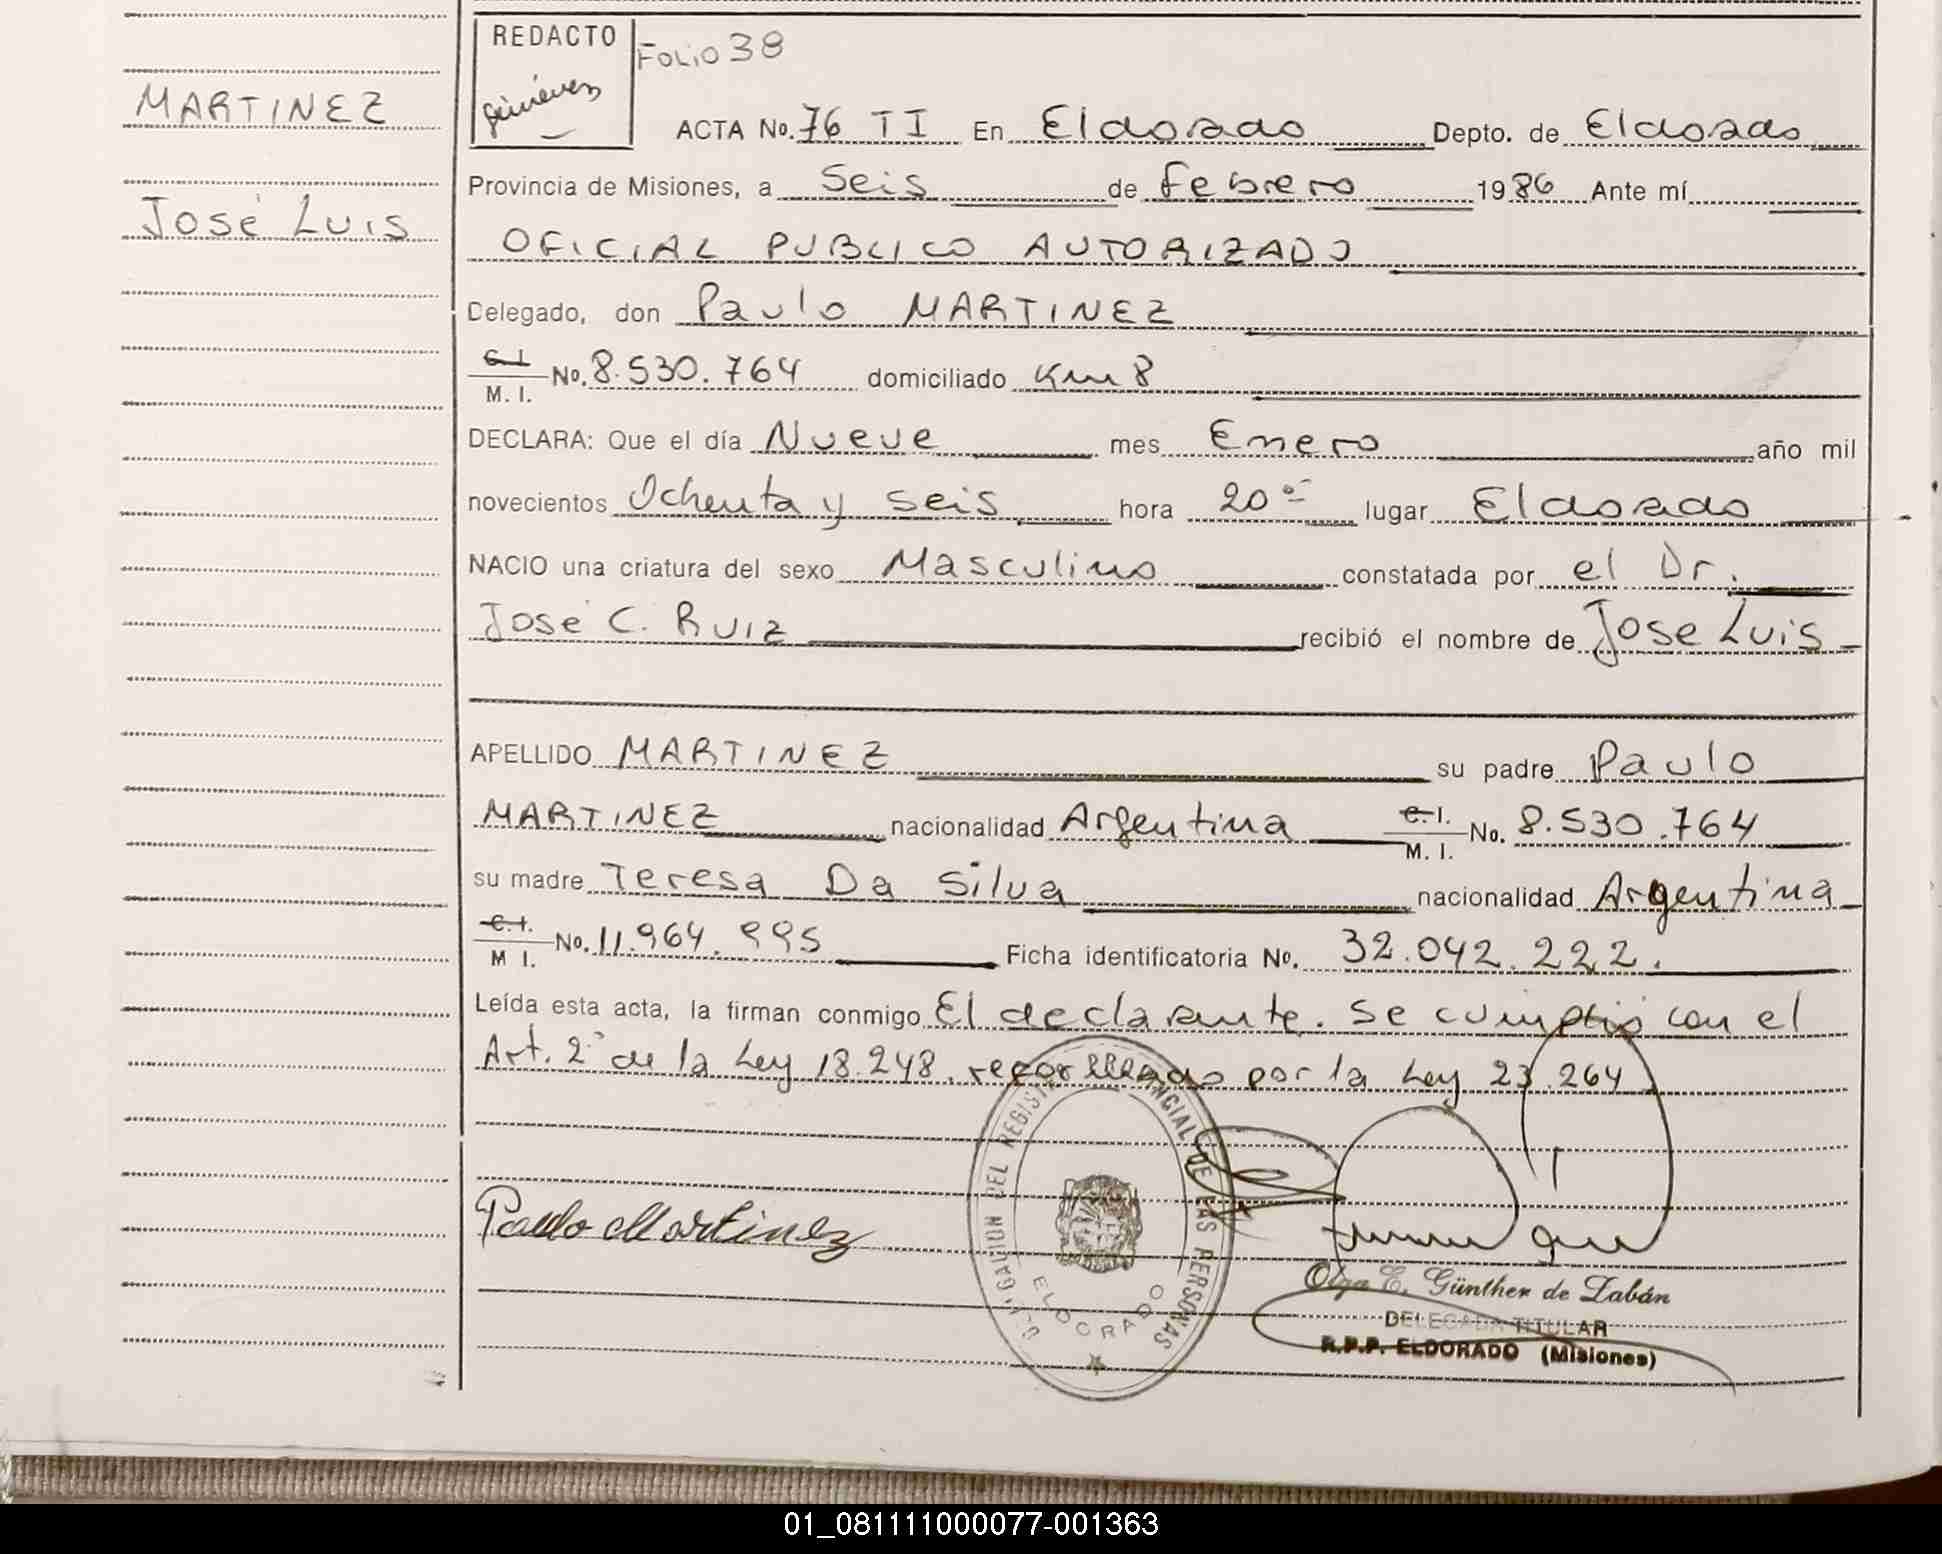 MARTINEZ
José Luis
REDACTO
Giménez
Folio 38
ACTA No. 76 TI En Eldorado Depto. de Eldorado
Provincia de Misiones, a Seis de Febrero 1986 Ante mí
OFICIAL PUBLICO AUTORIZADO
Delegado, don Paulo MARTINEZ
C.I. M. I. No. 8.530.764 domiciliado Km 8
DECLARA: Que el día Nueve mes Enero año mil
novecientos Ochenta y seis hora 20 lugar Eldorado
NACIO una criatura del sexo Masculino constatada por el Dr.
José C. Ruiz recibió el nombre de Jose Luis
APELLIDO MARTINEZ su padre Paulo
MARTINEZ nacionalidad Argentina C.I. M. I. No. 8.530.764
su madre Teresa Da Silva nacionalidad Argentina
C.I. M I. No. 11.964.995 Ficha identificatoria No. 32.042.222.
Leída esta acta, la firman conmigo El declarante. Se cumplió con el
Art. 2° de la Ley 18.248. por la Ley 23.264
Paulo Martinez
DELEGACION DEL REGISTRO PROVINCIAL DE LAS PERSONAS
ELDORADO
Olga E. Günther de Labán
DELEGADA TITULAR
R.P.P. ELDORADO (Misiones)
01_081111000077-001363